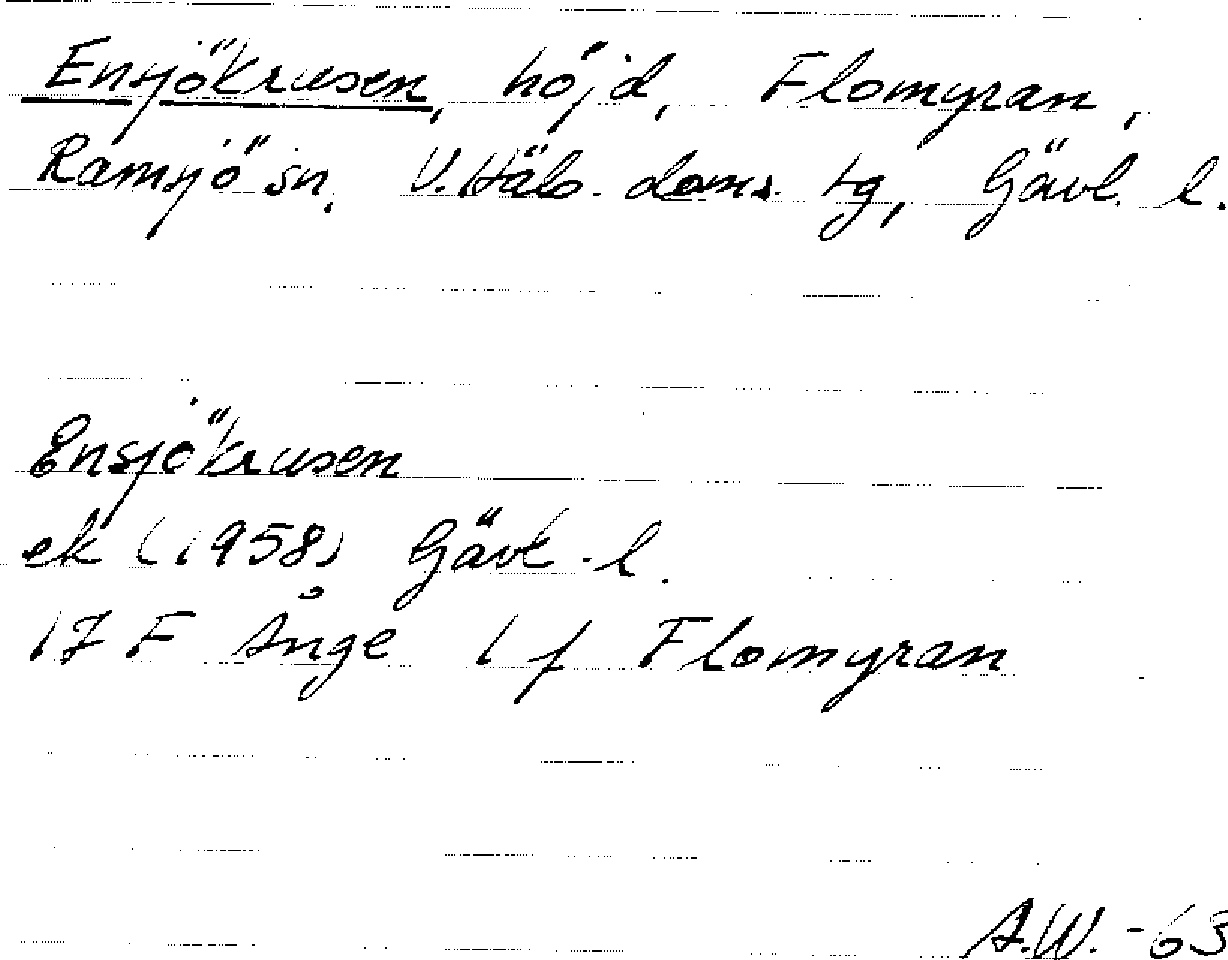 Ensjökrusen, höjd, Flomyran,
Ramsjö sn, V. Häls. doms. tg, Gävl. l.
Ensjökrusen
ek (1958) Gävl. l.
17 F Ånge 1 f Flomyran
A.W. -63